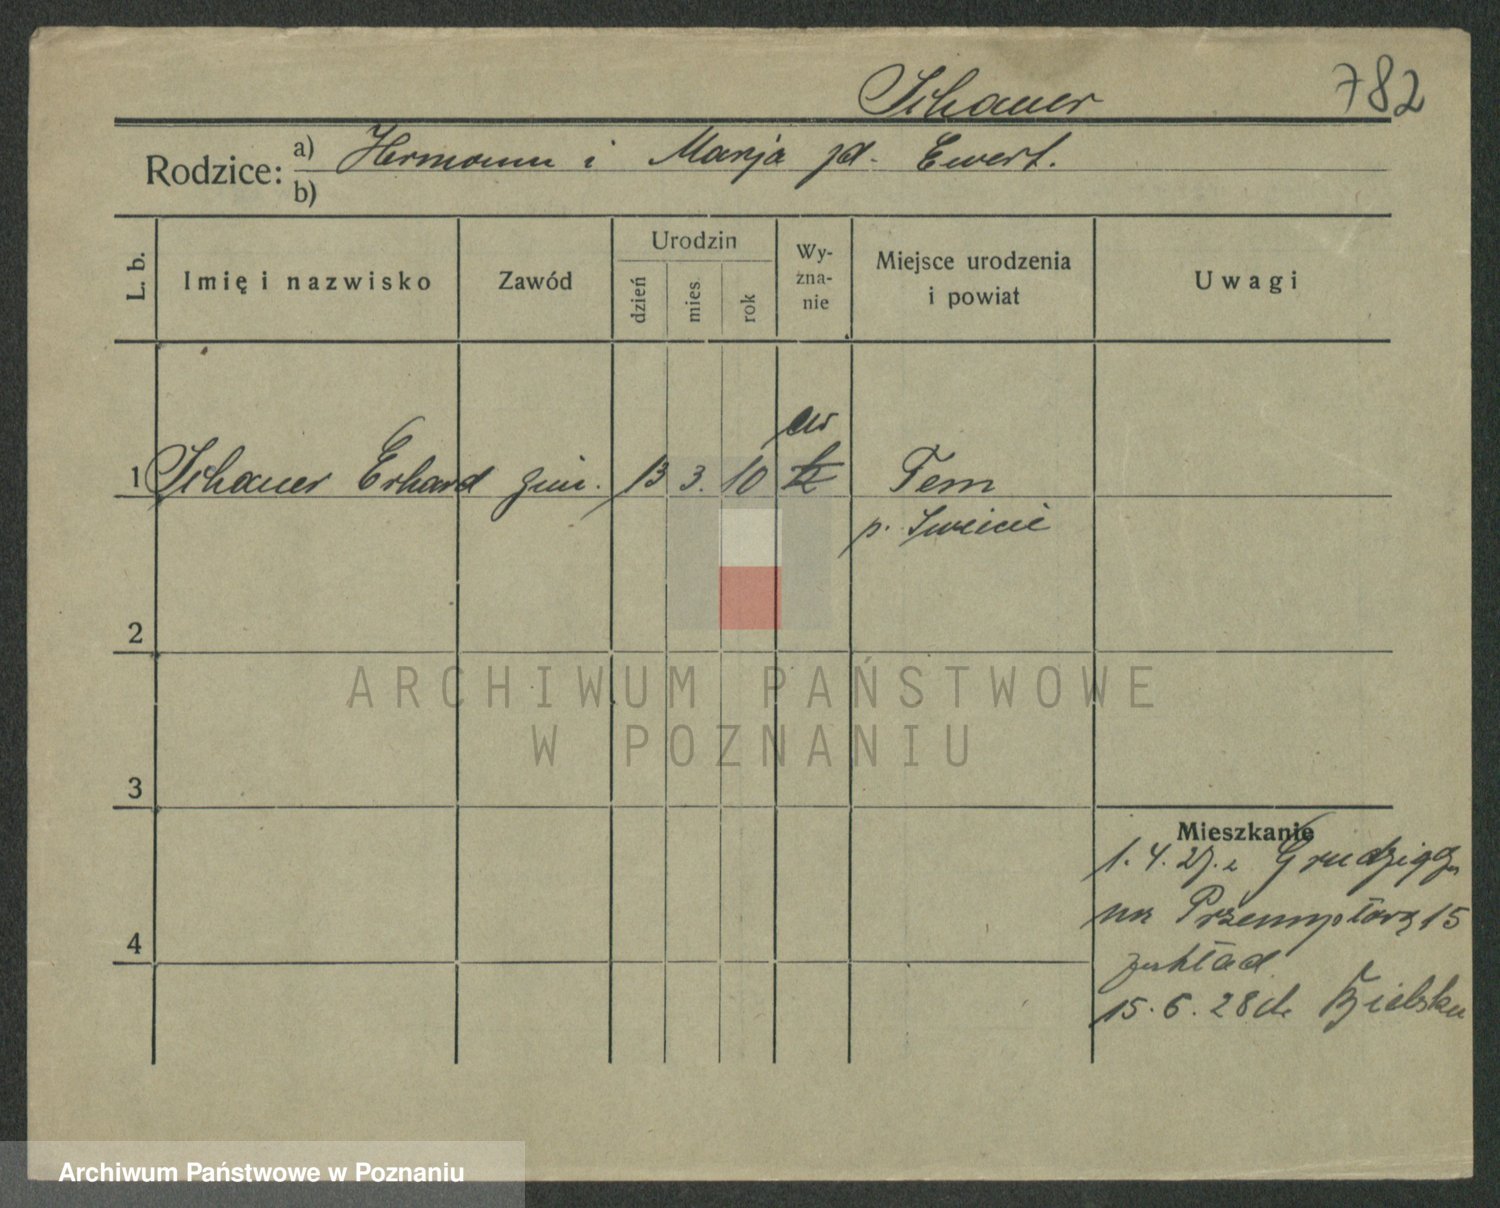 Schauer 782
Rodzice: a) Hermann i Marja zd. Ewert.
b)
L. b. Imię i nazwisko Zawód Urodzin dzień mies. rok Wy-zna-nie Miejsce urodzenia i powiat Uwagi
ew
1 Schauer Erhard 13 3. 10 k Fem
p. Świecie
2
ARCHIWUM PAŃSTWOWE
W POZNANIU
3
Mieszkanie
1. 4. 27. z Grudziądz
na Przemysłową 15
zakład
4
15. 6. 28 do Bielska
Archiwum Państwowe w Poznaniu